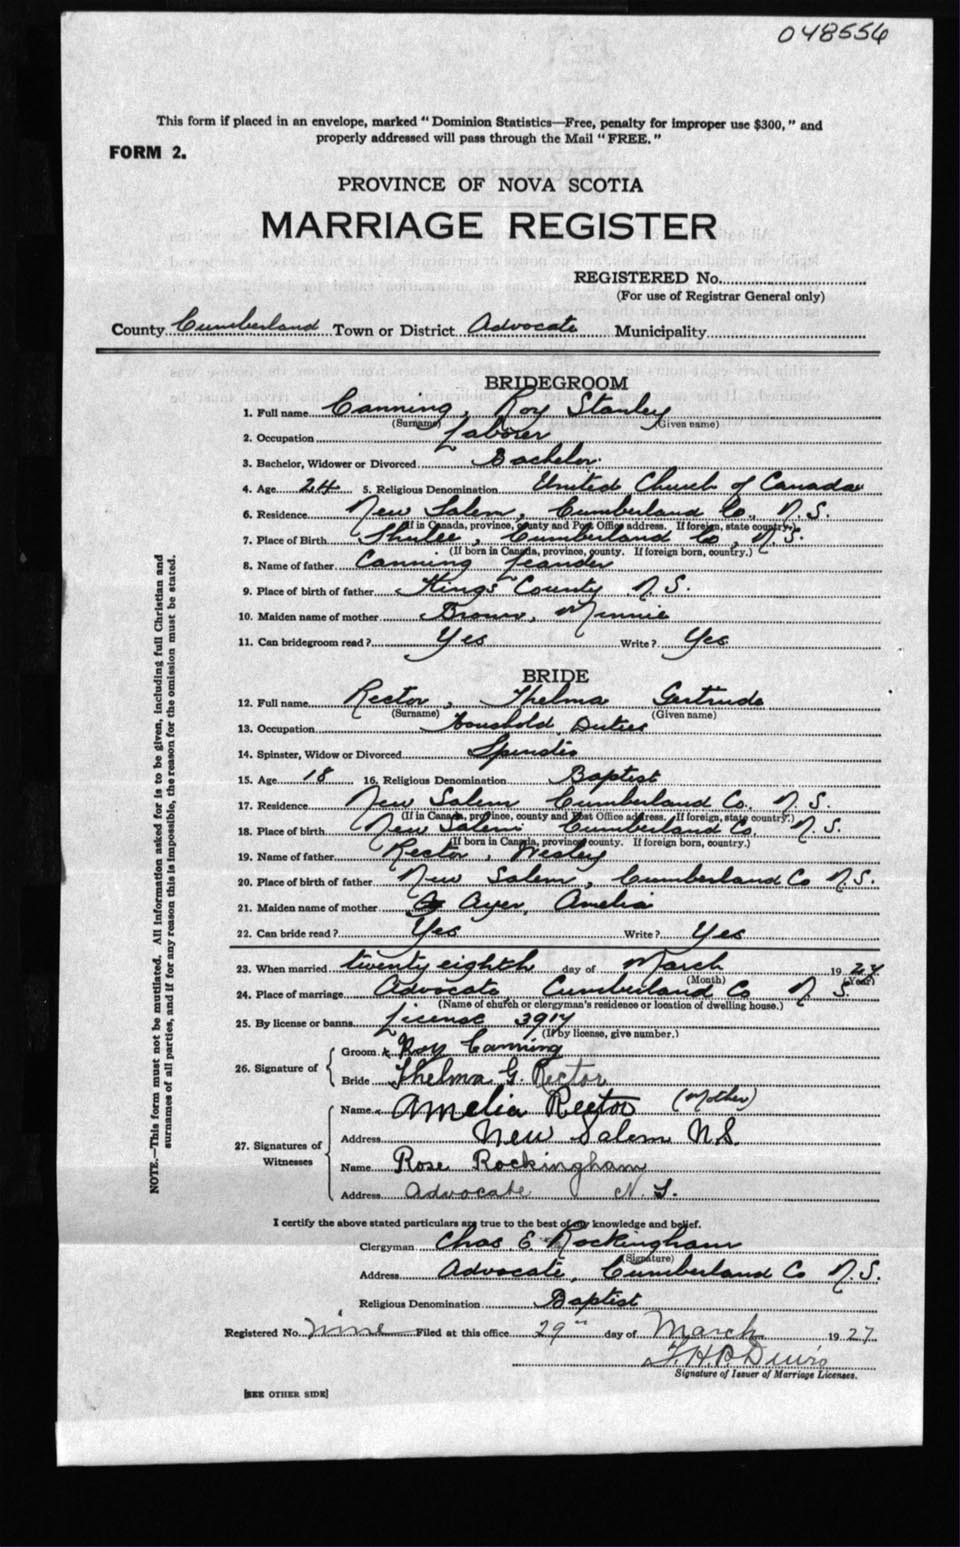 048556
This form if placed in an envelope, marked "Dominion Statistics—Free, penalty for improper use $300," and
properly addressed will pass through the Mail "FREE."
FORM 2.
PROVINCE OF NOVA SCOTIA
MARRIAGE REGISTER
REGISTERED No.
(For use of Registrar General only)
County Cumberland Town or District Advocate Municipality
BRIDEGROOM
1. Full name Canning, Roy Stanley
(Surname) (Given name)
2. Occupation Laborer
3. Bachelor, Widower or Divorced Bachelor
4. Age 24 5. Religious Denomination United Church of Canada
6. Residence New Salem, Cumberland Co., N.S.
(If in Canada, province, county and Post Office address. If foreign, state country.)
7. Place of Birth Shulee, Cumberland Co, N.S.
(If born in Canada, province, county. If foreign born, country.)
8. Name of father Canning Leander
9. Place of birth of father Kings County N.S.
10. Maiden name of mother Brown, Minnie
11. Can bridegroom read? Yes Write? Yes
BRIDE
12. Full name Rector, Thelma Gertrude
(Surname) (Given name)
13. Occupation Household Duties
14. Spinster, Widow or Divorced Spinster
15. Age 18 16. Religious Denomination Baptist
17. Residence New Salem Cumberland Co. N.S.
(If in Canada, province, county and Post Office address. If foreign, state country.)
18. Place of birth New Salem Cumberland Co. N.S.
(If born in Canada, province county. If foreign born, country.)
19. Name of father Rector, Wesley
20. Place of birth of father New Salem, Cumberland Co N.S.
21. Maiden name of mother Ayer, Amelia
22. Can bride read? Yes Write? Yes
23. When married twenty eighth day of March 1927
(Month) (Year)
24. Place of marriage Advocate Cumberland Co N S.
(Name of church or clergyman's residence or location of dwelling house.)
25. By license or banns License 3914
(If by license, give number.)
26. Signature of
Groom Roy Canning
Bride Thelma G. Rector
27. Signatures of Witnesses
Name Amelia Rector (Mother)
Address New Salem N.S.
Name Rose Rockingham
Address Advocate N.S.
I certify the above stated particulars are true to the best of my knowledge and belief.
Clergyman Chas. E. Rockingham
(Signature)
Address Advocate, Cumberland Co N.S.
Religious Denomination Baptist
Registered No. nine Filed at this office 29th day of March 1927
Signature of Issuer of Marriage Licenses.
[SEE OTHER SIDE]
NOTE.—This form must not be mutilated. All information asked for is to be given, including full Christian and
surnames of all parties, and if for any reason this is impossible, the reason for the omission must be stated.